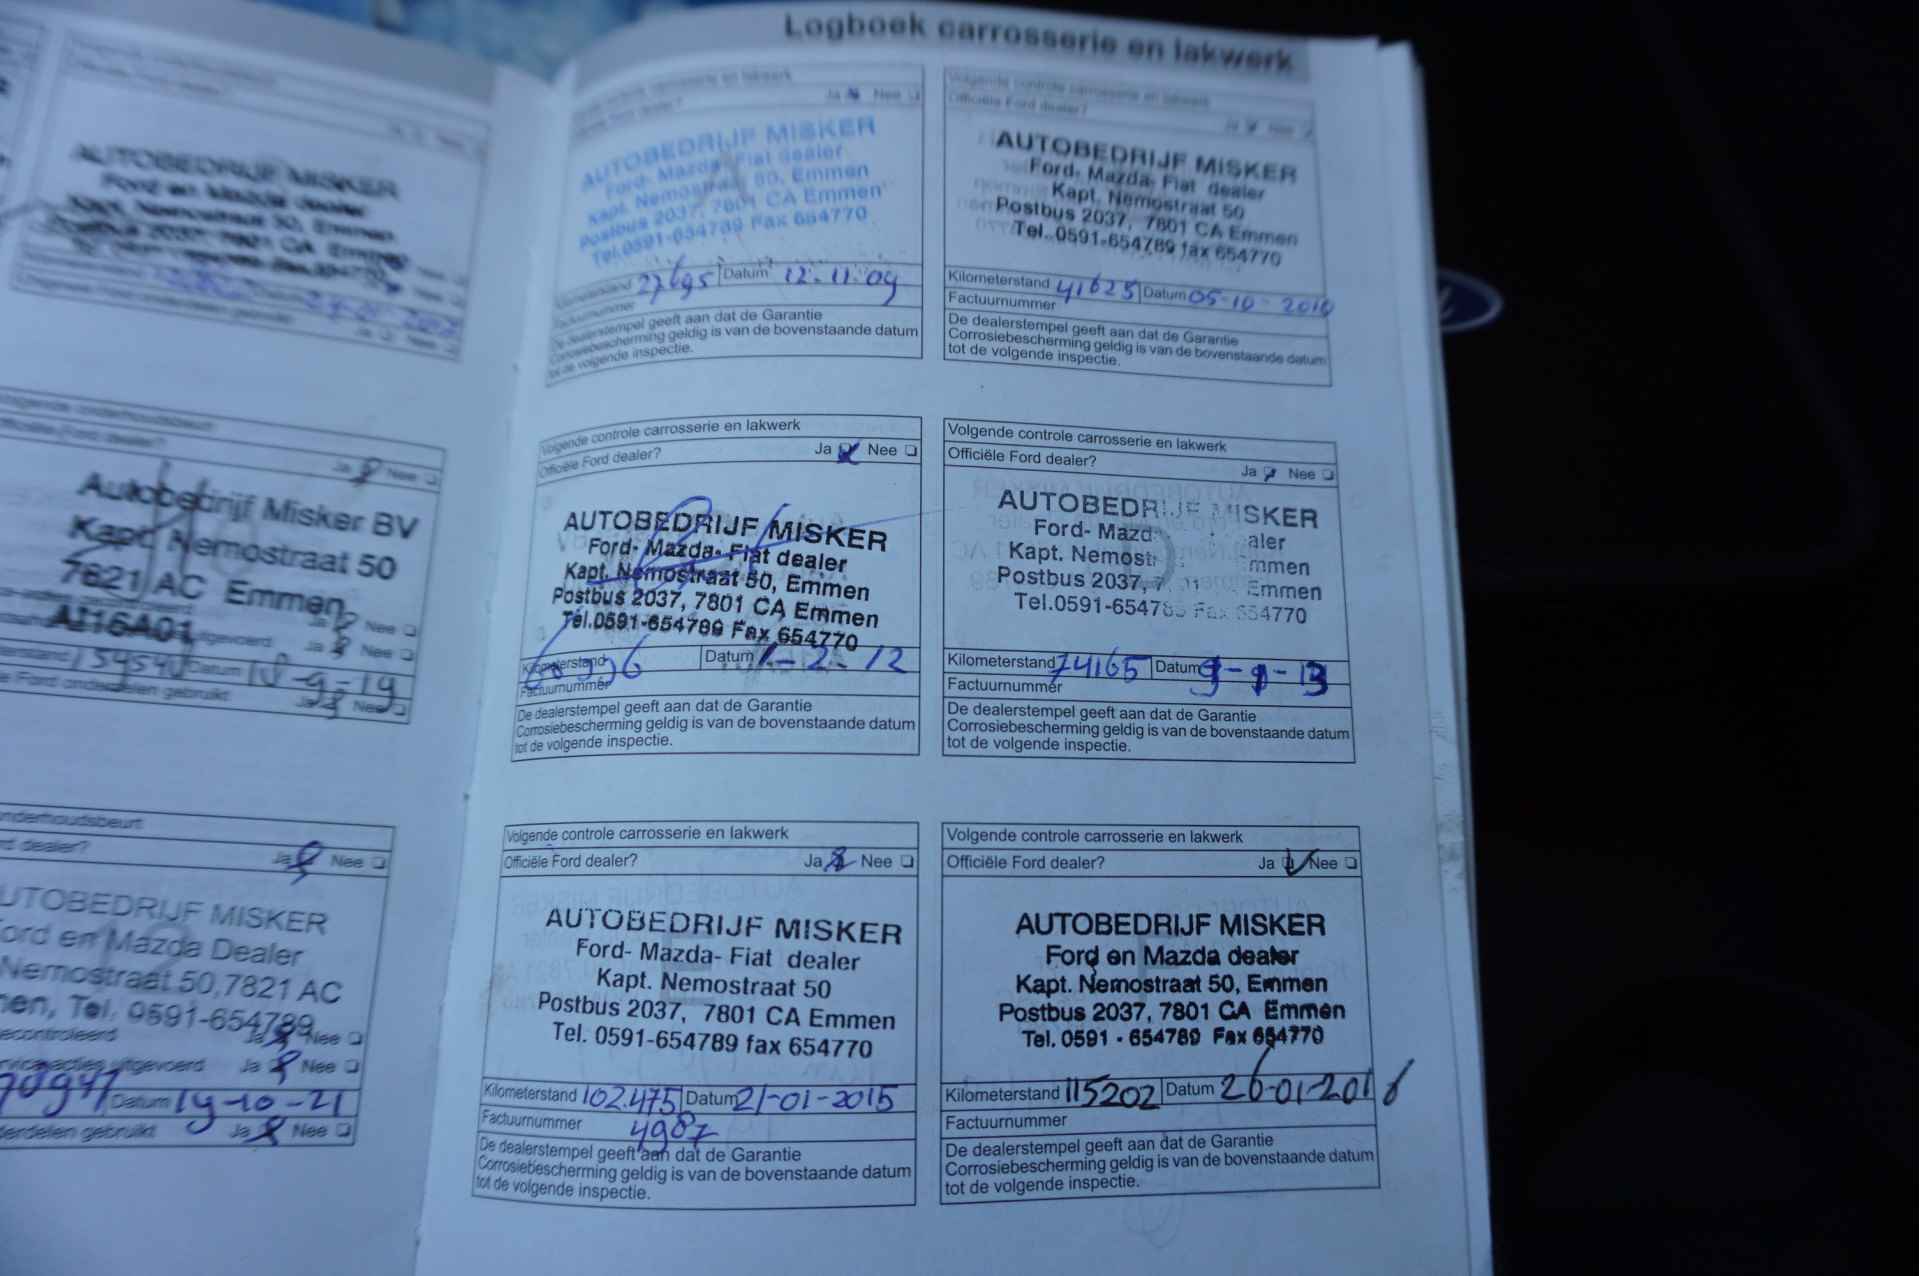 AUTOBEDRIJF MISKER
Ford en Mazda dealer
Kapt. Nemostraat 50, Emmen
Postbus 2037, 7801 CA Emmen
Ja Nee
Autobedrijf Misker BV
Kapt. Nemostraat 50
7821 AC Emmen
AI16A01
Ja Nee
uitgevoerd Ja Nee
Datum 18-9-19
Ford onderdelen gebruikt Ja Nee
onderhoudsbeurt
dealer? Ja Nee
AUTOBEDRIJF MISKER
Ford en Mazda Dealer
Nemostraat 50,7821 AC
Tel. 0591-654789
gecontroleerd Ja Nee
uitgevoerd Ja Nee
70947 Datum 19-10-21
onderdelen gebruikt Ja Nee
Logboek carrosserie en lakwerk
controle carrosserie en lakwerk
Ford dealer? Ja Nee
AUTOBEDRIJF MISKER
Ford- Mazda- Fiat dealer
Kapt. Nemostraat 50, Emmen
Postbus 2037, 7801 CA Emmen
Tel.0591-654789 Fax 654770
Kilometerstand 27695 Datum 12.11.09
Factuurnummer
De dealerstempel geeft aan dat de Garantie
Corrosiebescherming geldig is van de bovenstaande datum
tot de volgende inspectie.
Volgende controle carrosserie en lakwerk
Officiële Ford dealer? Ja Nee
AUTOBEDRIJF MISKER
Ford- Mazda- Fiat dealer
Kapt. Nemostraat 50
Postbus 2037, 7801 CA Emmen
Tel.0591-654789 fax 654770
Kilometerstand 41625 Datum 05-10-2010
Factuurnummer
De dealerstempel geeft aan dat de Garantie
Corrosiebescherming geldig is van de bovenstaande datum
tot de volgende inspectie.
Volgende controle carrosserie en lakwerk
Officiële Ford dealer? Ja Nee
AUTOBEDRIJF MISKER
Ford- Mazda- Fiat dealer
Kapt. Nemostraat 50, Emmen
Postbus 2037, 7801 CA Emmen
Tel.0591-654789 Fax 654770
Kilometerstand Datum 1-2-12
Factuurnummer
De dealerstempel geeft aan dat de Garantie
Corrosiebescherming geldig is van de bovenstaande datum
tot de volgende inspectie.
Volgende controle carrosserie en lakwerk
Officiële Ford dealer? Ja Nee
AUTOBEDRIJF MISKER
Ford- Mazd aler
Kapt. Nemostr mmen
Postbus 2037, 7 01 Emmen
Tel.0591-654789 Fax 654770
Kilometerstand 74165 Datum 9-1-13
Factuurnummer
De dealerstempel geeft aan dat de Garantie
Corrosiebescherming geldig is van de bovenstaande datum
tot de volgende inspectie.
Volgende controle carrosserie en lakwerk
Officiële Ford dealer? Ja Nee
AUTOBEDRIJF MISKER
Ford- Mazda- Fiat dealer
Kapt. Nemostraat 50
Postbus 2037, 7801 CA Emmen
Tel. 0591-654789 fax 654770
Kilometerstand 102.475 Datum 21-01-2015
Factuurnummer 4987
De dealerstempel geeft aan dat de Garantie
Corrosiebescherming geldig is van de bovenstaande datum
tot de volgende inspectie.
Volgende controle carrosserie en lakwerk
Officiële Ford dealer? Ja Nee
AUTOBEDRIJF MISKER
Ford en Mazda dealer
Kapt. Nemostraat 50, Emmen
Postbus 2037, 7801 CA Emmen
Tel. 0591 - 654789 Fax 654770
Kilometerstand 115202 Datum 26-01-2016
Factuurnummer
De dealerstempel geeft aan dat de Garantie
Corrosiebescherming geldig is van de bovenstaande datum
tot de volgende inspectie.